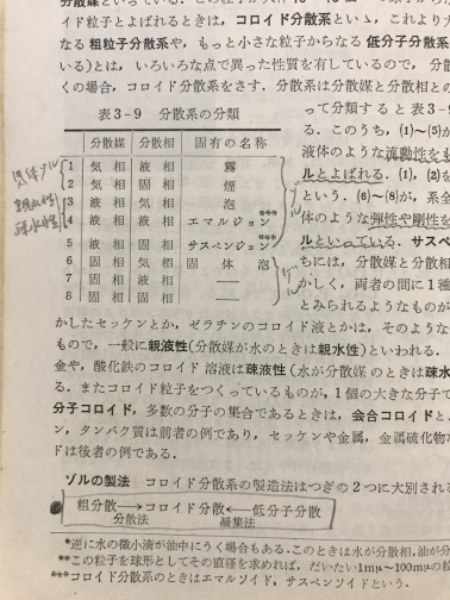 分散媒といっている．
イド粒子とよばれるときは，コロイド分散系といゝ，これより大
なる粗粒子分散系や，もっと小さな粒子からなる低分子分散系
いる)とは，いろいろな点で異った性質を有しているので，分散
くの場合，コロイド分散系をさす．分散系は分散媒と分散相との
表3-9 分散系の分類
分散媒 分散相 固有の名称
1 気相 液相 霧
2 気相 固相 煙
3 液相 気相 泡
4 液相 液相 エマルジョン***
5 液相 固相 サスペンジョン***
6 固相 気相 固体泡
7 固相 液相 ——
8 固相 固相 ——
気体ゾル
親水性
疎水性
ゾル
ゲル
って分類すると表3-9
る．このうち，(1)~(5)が
液体のような流動性をも
ルとよばれる．(1)，(2)を
という．(6)~(8)が，系全
体のような弾性や剛性を
ルといっている．サスペ
ちには，分散媒と分散相
かしく，両者の間に1種
とみられるようなものが
かしたセッケンとか，ゼラチンのコロイド液とかは，そのような
もので，一般に親液性(分散媒が水のときは親水性)といわれる．
金や，酸化鉄のコロイド溶液は疎液性(水が分散媒のときは疎水
る．またコロイド粒子をつくっているものが，1個の大きな分子で
分子コロイド，多数の分子の集合であるときは，会合コロイドと
ン，タンパク質は前者の例であり，セッケンや金属，金属硫化物
ドは後者の例である．
ゾルの製法 コロイド分散系の製造法はつぎの2つに大別される
粗分散→コロイド分散←低分子分散
分散法 凝集法
*逆に水の微小滴が油中にうく場合もある．このときは水が分散相，油が分
**この粒子を球形としてその直径を求めれば，だいたい1mμ~100mμの粒
***コロイド分散系のときはエマルソイド，サスペンソイドという．